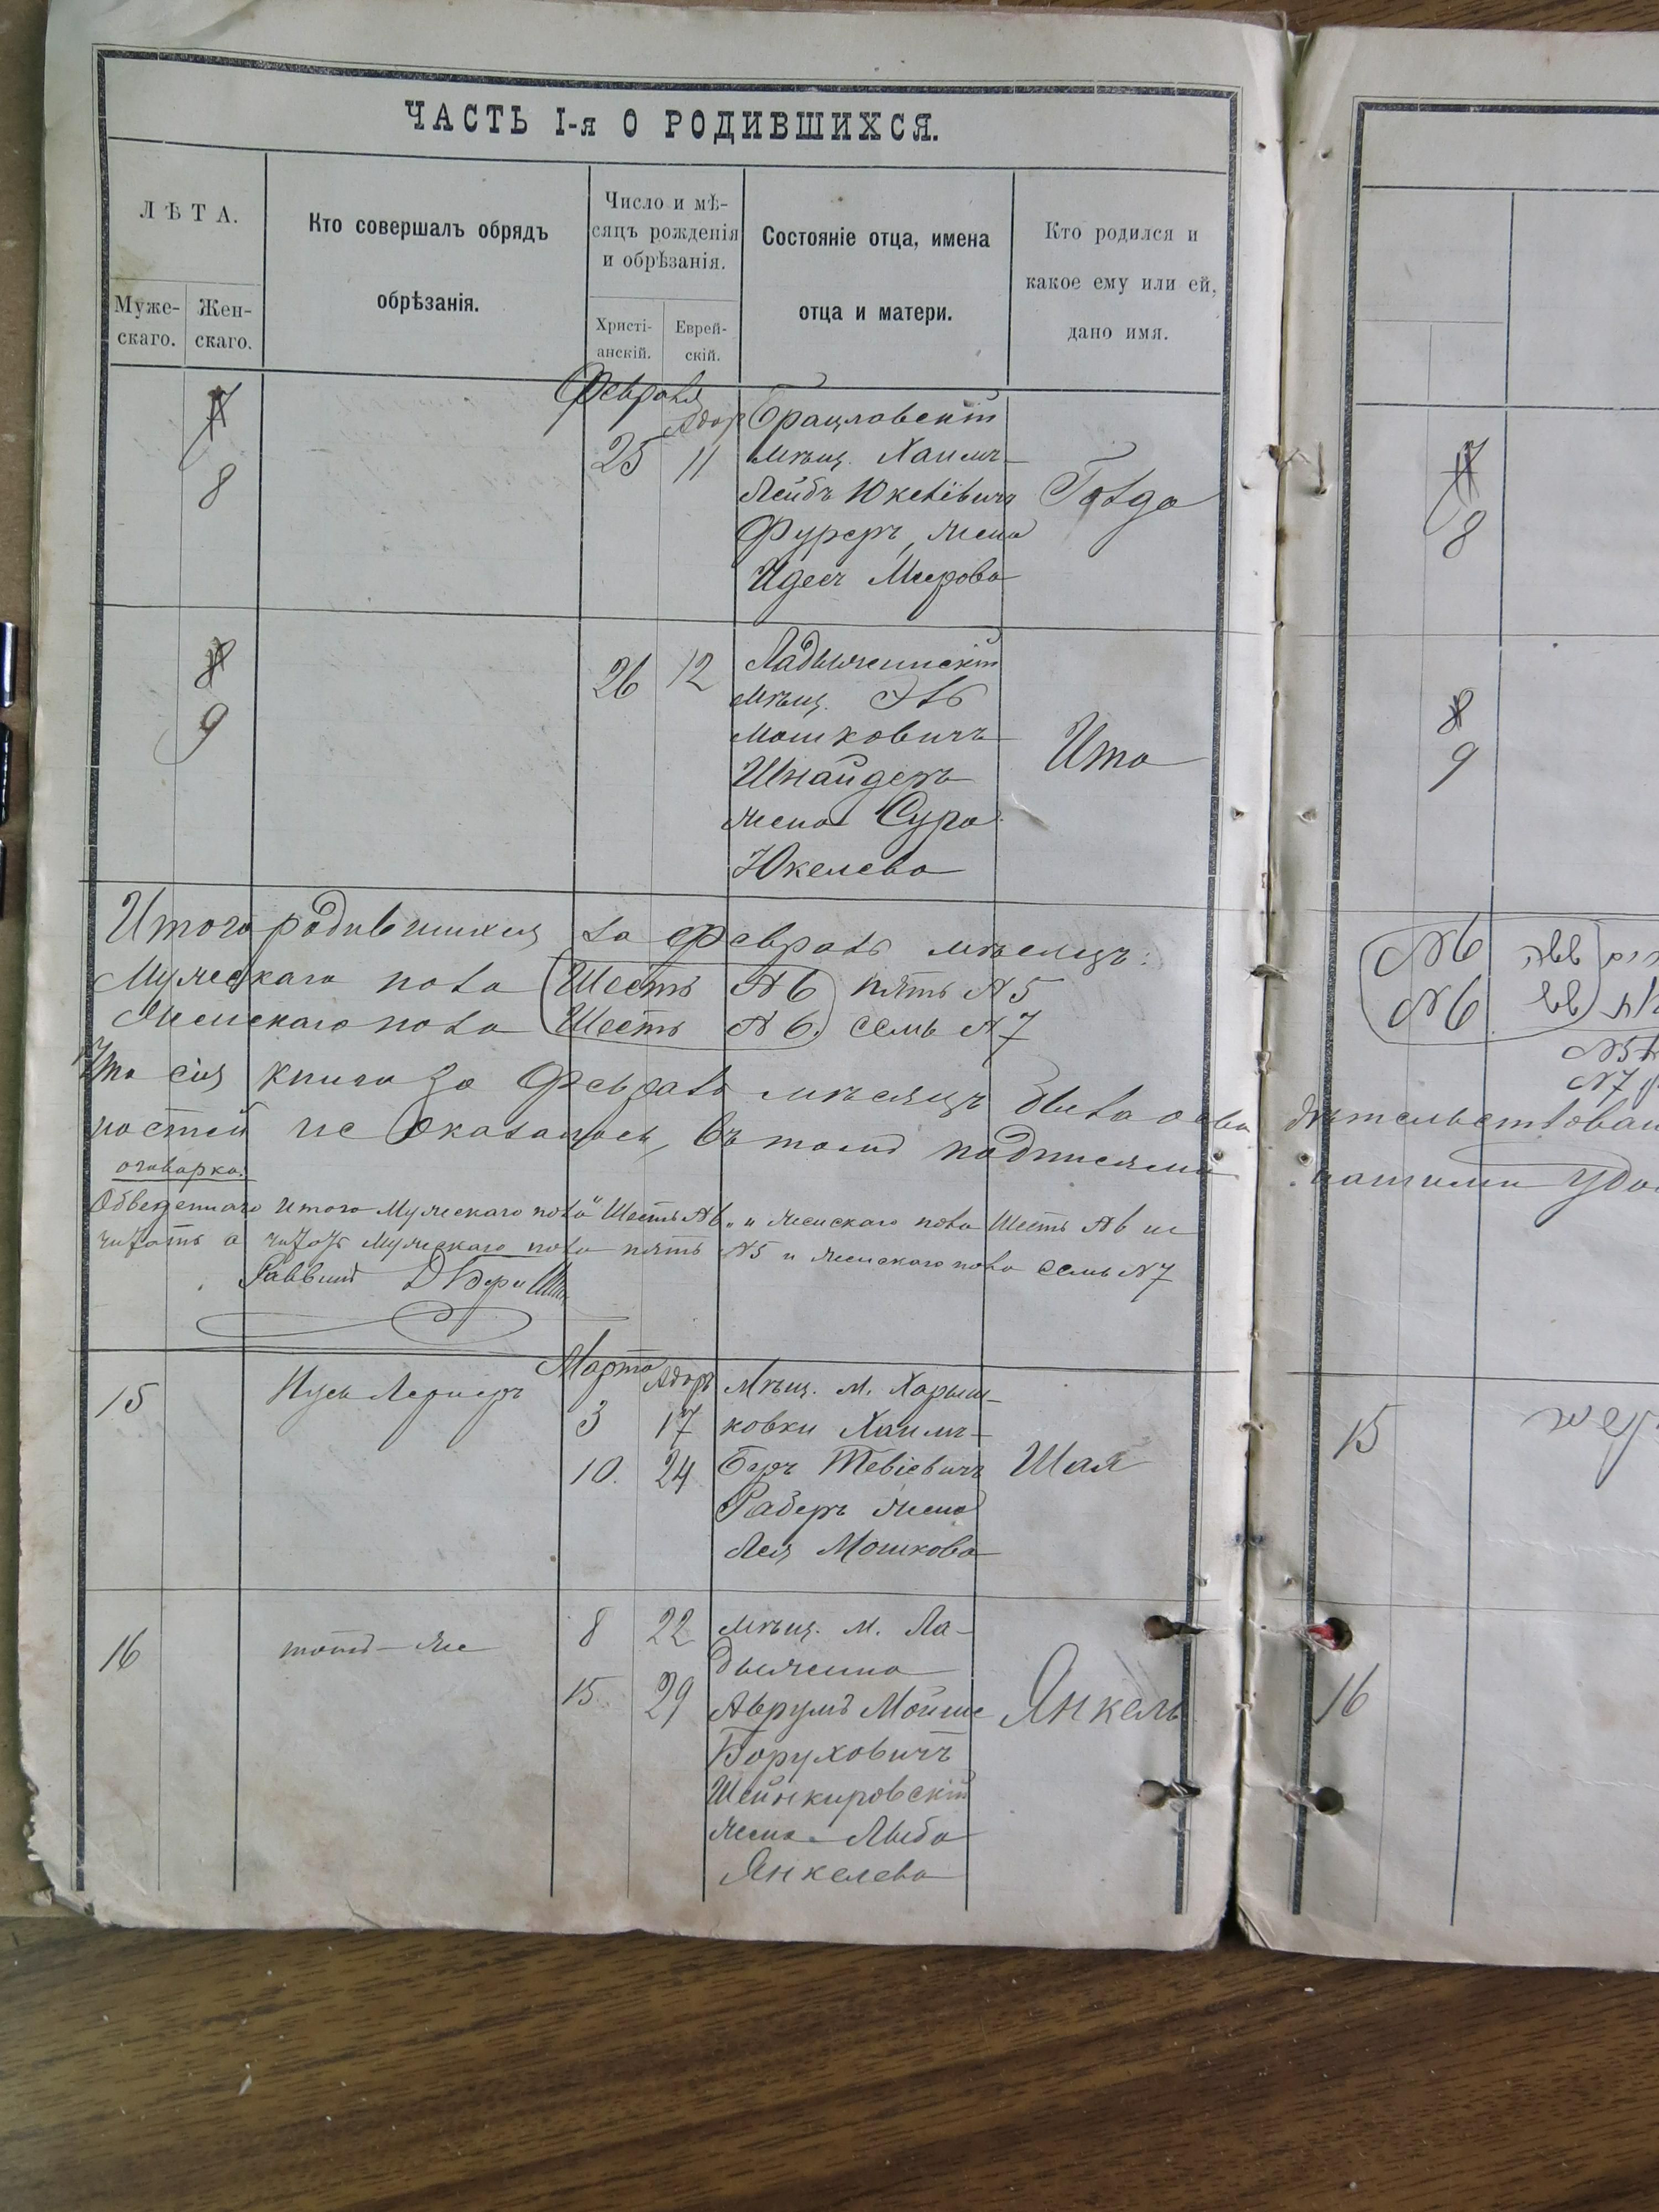 ЧАСТЬ I-я О РОДИВШИХСЯ.
ЛѢТА.
Муже-
скаго.
Жен-
скаго.
Кто совершалъ обрядъ
обрѣзанія.
Число и мѣ-
сяцъ рожденія
и обрѣзанія.
Христі-
анскій.
Еврей-
скій.
Состояніе отца, имена
отца и матери.
Кто родился и
какое ему или ей,
дано имя.
7
8
Февраля
Адар
25 11
Брацловскій
мѣщ. Хаимъ
Лейбъ Юкелівичъ
Фуреръ, жена
Идесъ Меерова
Голда
8
9
26 12
Ладыженскій
мѣщ.
Мошковичъ
Шнайдеръ
жена Сура
Юкелева
Ита
Итого родившихся за Февраль мѣсяцъ:
Мужескаго пола Шесть №6 пять №5
Женскаго пола Шесть №6. семь №7
Что сія книга за Февраль мѣсяцъ была осви
ностей не оказалось, въ томъ подписями
оговорка:
Обведеннаго итого Мужескаго пола "Шесть №6" и женскаго пола Шесть №6 не
читать а читать Мужескаго пола пять №5 и женскаго пола семь №7
Раввинъ
15
Марта
Адаръ
3 17
10. 24
Мѣщ. м.
ковки Хаимъ
Беръ Тевіевичъ
Рабертъ жена
Лея Мошкова
Шая
16
тотъ-же
8 22
15 29
мѣщ. м. Ла-
дыжина
Аврумъ Мойше
Боруховичъ
Шейнкировскій
жена Лыба
Янкелева
Янкель
7
8
8
9
№6
№6
№5
№7
дѣтельствован
нашими удо
15
16